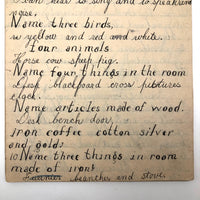 can hear to sing and to speak
noise.
Name three birds.
yellow and red and white.
four animals
Horse cow sheep pig.
Name four things in the room
Desk blackboard cross pictures
clock.
Name articles made of wood.
Desk bench door.
Iron coffee cotton silver
and gold
10 Name three things in room
made of iron
and stove.